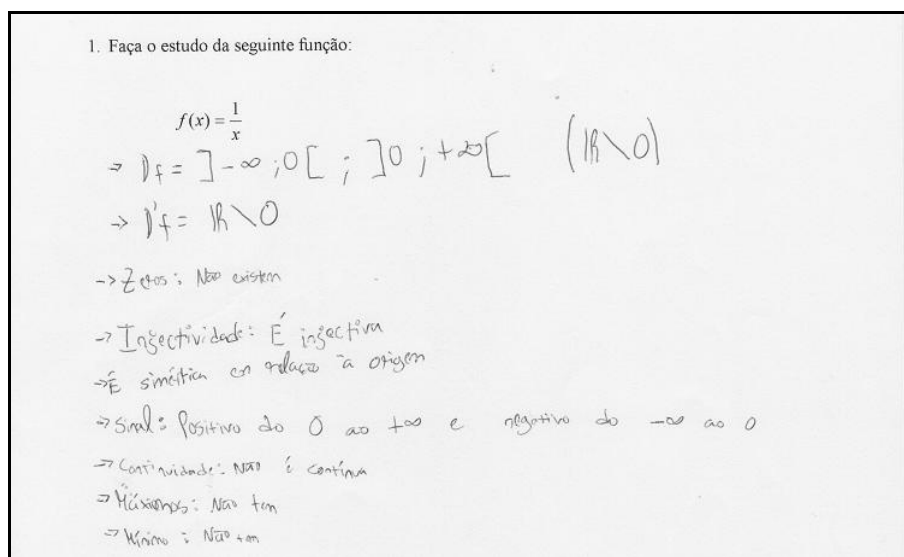 1. Faça o estudo da seguinte função:
f(x) = 1/x
→ Df = ]-∞ ;0[ ; ]0 ; +∞[ (ℝ\0)
→ D'f = ℝ\0
-> Zeros: Não existem
-> Injectividade: É injectiva
->É simétrica em relação à origem
-> Sinal: Positivo do 0 ao +∞ e negativo do -∞ ao 0
-> Continuidade: Não é contínua
-> Máximos: Não tem
-> Mínimo: Não tem